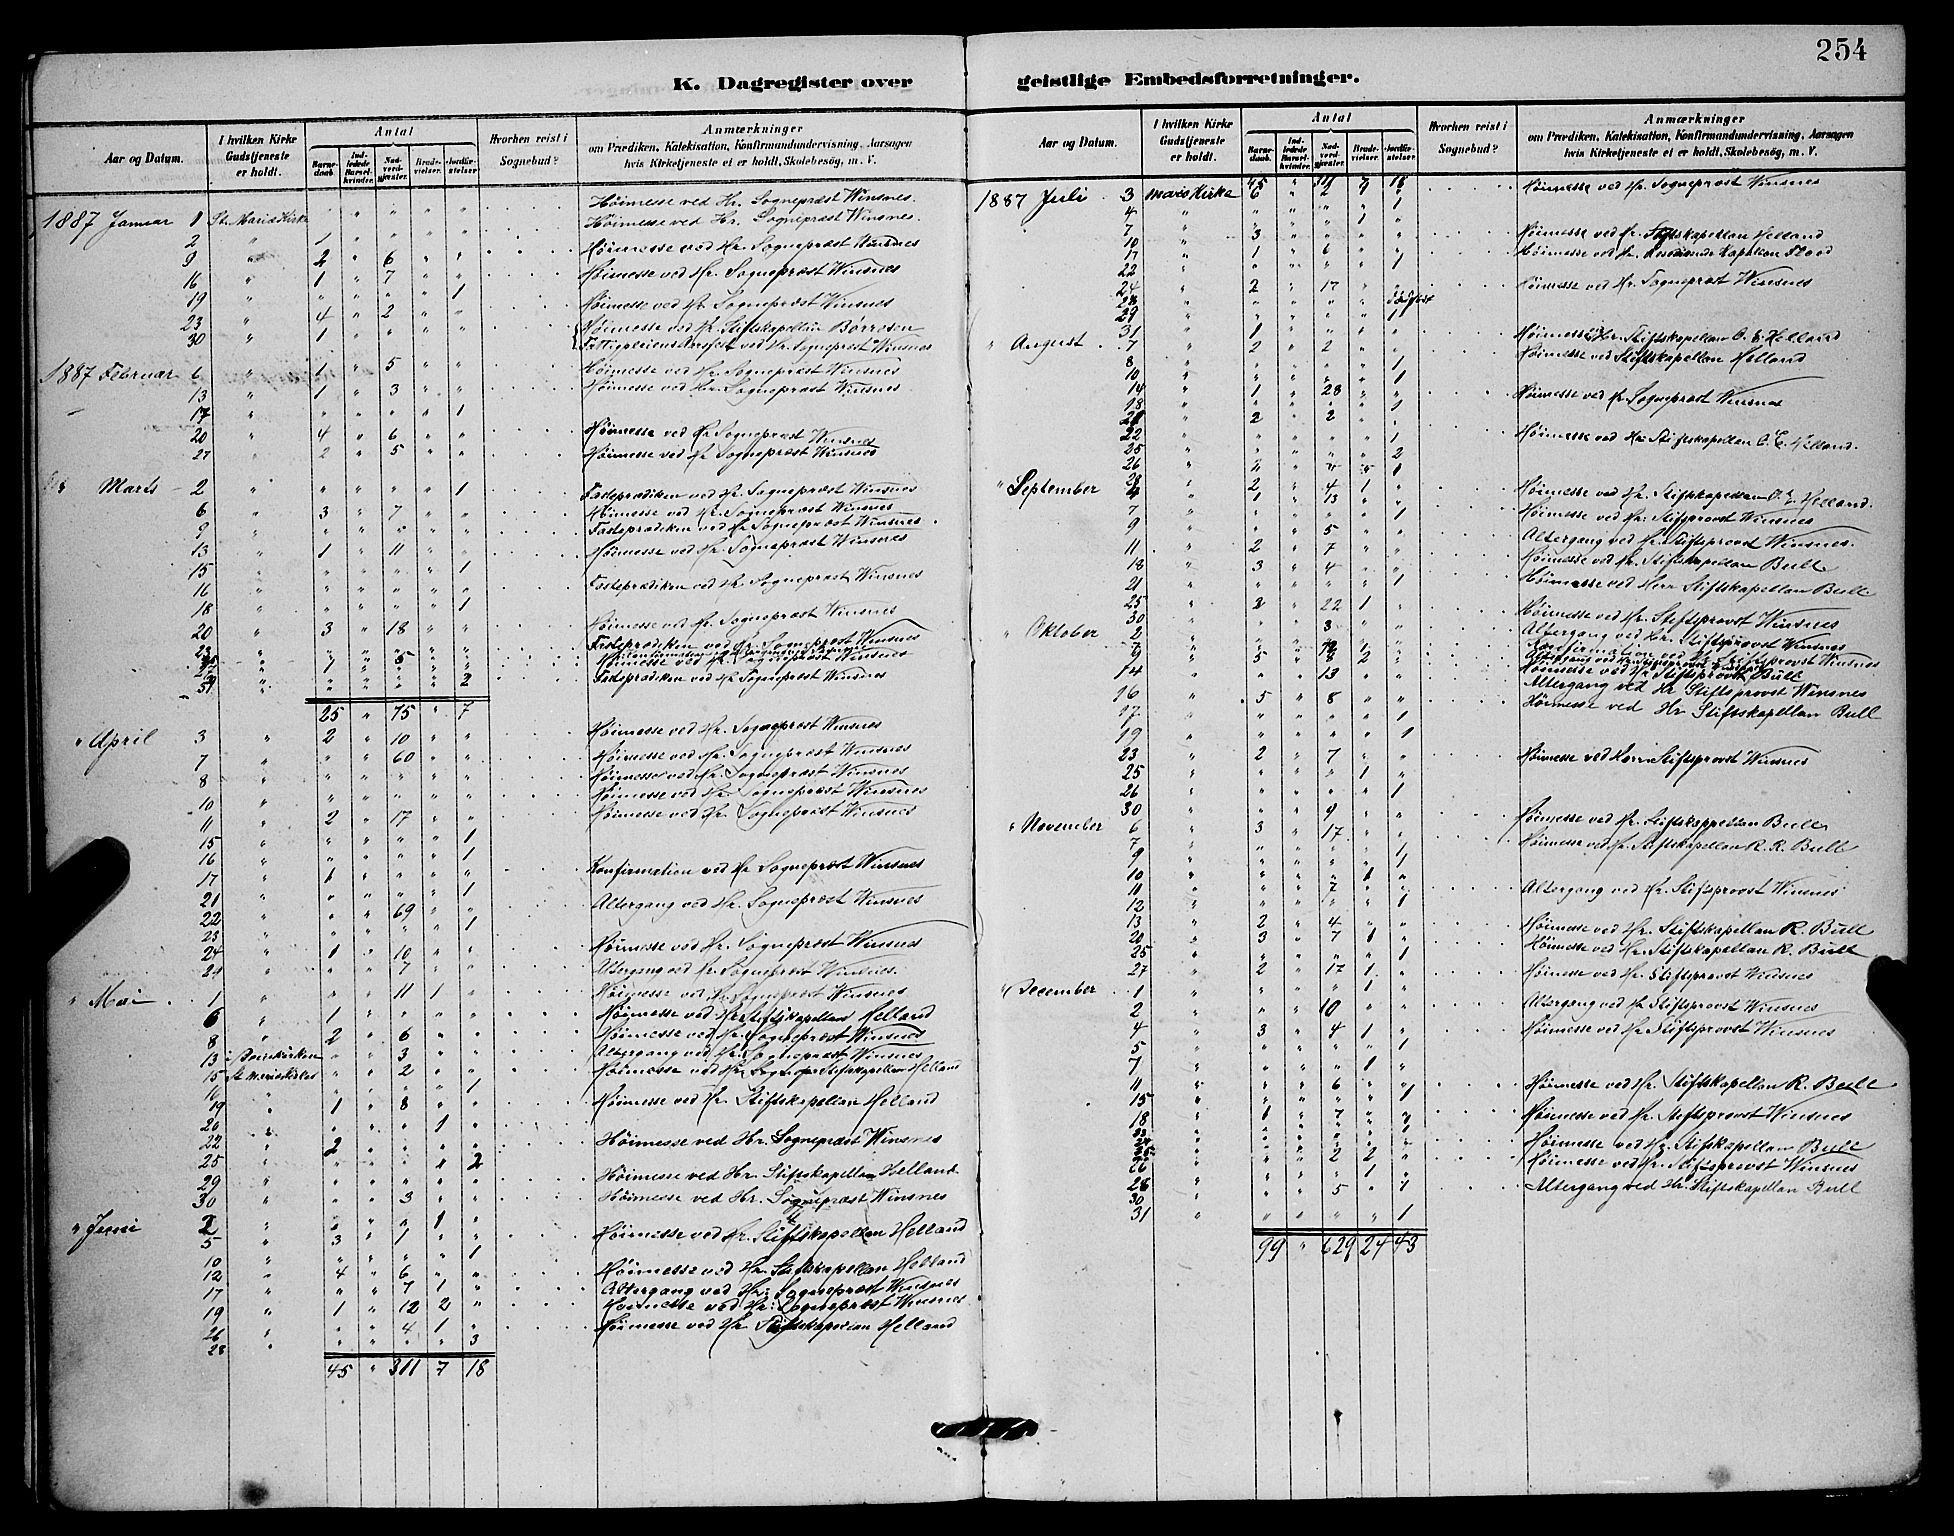 254
K. Dagregister over geistlige Embedsforretninger.
Aar og Datum. I hvilken Kirke Gudstjeneste er holdt. Antal Barnedaab. Indledede Barselkvinder. Nadverdgjester. Brudevielser. Jordfæstelser. Hvorhen reist i Sognebud? Anmærkninger om Prædiken, Katekisation, Konfirmandundervisning, Aarsagen hvis Kirketjeneste ei er holdt, Skolebesög, m. V.
Höimesse ved Hr. Sognepræst Winsnes.
1887 Januar 1 St. Maria Kirke " " " " " Höimesse ved Hr. Sognepræst Winsnes.
2 " 1 " " " "
9 " 2 " 6 " " Höimesse ved Hr. Sognepræst Winsnes
16 " 1 " 7 " " Höimesse ved Hr. Sognepræst Winsnes
19 " " " " " 1
23 " 4 " 2 " " Höimesse ved Hr. Sognepræst Winsnes
30 " 1 " " " " Höimesse ved Hr. Stiftskapellan Börresen
ved Hr. Sognepræst Winsnes
1887 Februar 6 " 1 " 5 " " Höimesse ved Hr. Sognepræst Winsnes
13 " 1 " 3 " " Höimesse ved Hr. Sognepræst Winsnes
17 " " " " " 1
20 " 4 " 6 " " Höimesse ved Hr. Sognepræst Winsnes
27 " 2 " 5 " " Höimesse ved Hr. Sognepræst Winsnes
Marts 2 " " " " " 1 Fasteprædiken ved Hr. Sognepræst Winsnes
6 " 3 " 7 " " Höimesse ved Hr. Sognepræst Winsnes
9 " " " " " " Fasteprædiken ved Hr. Sognepræst Winsnes
13 " 1 " 11 " " Höimesse ved Hr. Sognepræst Winsnes
15 " " " " " 1
16 " " " " " " Fasteprædiken ved Hr. Sognepræst Winsnes
18 " " " " " 1
20 " 3 " 18 " " Höimesse ved Hr. Sognepræst Winsnes
23 " " " " " " Fasteprædiken ved Hr. Sognepræst Winsnes
" 1 " 5 " " Höimesse ved Hr. Sognepræst Winsnes
" " " " " 2 Fasteprædiken ved Hr. Sognepræst Winsnes
25 " 75 " 7
" April 3 " 2 " 10 " " Höimesse ved Hr. Sognepræst Winsnes
7 " " " 60 " " Höimesse ved Hr. Sognepræst Winsnes
8 " " " " " " Höimesse ved Hr. Sognepræst Winsnes
10 " " " " " " Höimesse ved Hr. Sognepræst Winsnes
11 " 2 " 17 " " Höimesse ved Hr. Sognepræst Winsnes
15 " " " " " 1
16 " " " " " 1
17 " 1 " " " " Konfirmation ved Hr. Sognepræst Winsnes
21 " " " " " 1
22 " " " 69 " " Altergang ved Hr. Sognepræst Winsnes
23 " " " " " 1
24 " 1 " 10 " " Höimesse ved Hr. Sognepræst Winsnes
" " " 7 " " Altergang ved Hr. Sognepræst Winsnes.
" Mai 1 " " " 11 1 " Höimesse ved Hr. Sognepræst Winsnes
6 " 1 " " " " Höimesse ved Hr. Stiftskapellan Helland
8 " 2 " 6 " " Höimesse ved Hr. Sognepræst Winsnes
13 i Domkirken " " 3 " " Altergang ved Hr. Sognepræst Winsnes
15 St Mariakirkes " " 2 " " Höimesse ved Hr. Stiftskapellan Helland
16 " " " " " 1
19 " 1 " 8 " " Höimesse ved Hr. Stiftskapellan Helland
20 " " " " 1 "
22 " 2 " " " " Höimesse ved Hr. Sognepræst Winsnes
25 " " " " " 2
29 " " " " " " Höimesse ved Hr. Stiftskapellan Helland
30 " " " 3 " " Höimesse ved Hr. Sognepræst Winsnes
" Juni 2 " " " " 1 "
5 " 3 " 1 " " Höimesse ved Hr. Stiftskapellan Helland
10 " " " " " 1
12 " 4 " 6 " " Höimesse ved Hr. Stiftskapellan Helland
17 " " " 7 1 " Altergang ved Hr. Sognepræst Winsnes
19 " 1 " 12 2 " Höimesse ved Hr. Sognepræst Winsnes
26 " " " 4 1 " Höimesse ved Hr. Stiftskapellan Helland
28 " " " " " 3
45 " 311 7 18
Aar og Datum. I hvilken Kirke Gudstjeneste er holdt. Antal Barnedaab. Indledede Barselkvinder. Nadverdgjester. Brudevielser. Jordfæstelser. Hvorhen reist i Sognebud? Anmærkninger om Prædiken, Katekisation, Konfirmandundervisning, Aarsagen hvis Kirketjeneste ei er holdt, Skolebesög, m. V.
45 " 311 7 18
1887 Juli 3 Maria Kirke 6 " 2 Höimesse ved Hr. Sognepræst Winsnes
4 " " " " " 1
7 " " " " 1 "
10 " 3 " " " " Höimesse ved Hr. Stiftskapellan Helland
17 " 1 " 6 " " Höimesse ved Hr. Residerende Kapellan
22 " " " " " 1
24 " 2 " 17 " " Höimesse ved Hr. Sognepræst Winsnes
28 "
29 " " " " " 1
31 " 1 " " " " Höimesse Hr. Stiftskapellan O. E. Helland
" August 7 " 2 " 2 " " Höimesse ved Stiftskapellan Helland
8 " " " " " 1
10 " " " " " 1
14 " 1 " 28 " " Höimesse ved Hr. Sognepræst Winsnes
18 " " " " " 1
21 " 2 " 2 " "
22 " " " " " 1 Höimesse ved Hr. Stiftskapellan O. E. Helland.
25 " " " " " 2
26 " " " " " 1
28 " 2 " 4 1 " Höimesse ved Hr. Stiftskapellan O. E. Helland.
" September 4 " 1 " 13 " " Höimesse ved Hr. Stiftsprovst Winsnes
7 " " " " " 1
9 " " " 5 " " Altergang ved Hr. Stiftsprovst Winsnes.
11 " 2 " 7 " " Höimesse ved Hr. Stiftskapellan Bull
18 " 3 " 4 " " Höimesse ved Herr Stiftskapellan Bull
21 " " " " " 1
25 " 3 " 22 1 " Höimesse ved Hr. Stiftsprovst Winsnes
30 " " " 3 " " Altergang ved Hr. Stiftsprovst Winsnes
" Oktober 2 " Konfirmation ved Hr. Stiftsprovst Winsnes
7 "
9 " 5 " 2
14 " " " 13 " " Altergang ved Hr. Stiftsprovst Winsnes
16 " 5 " 8 " " Höimesse ved Hr. Stiftskapellan Bull
17 " " " " " 1
19 " " " " " 1
23 " 2 " 7 " " Höimesse ved Herr Stiftsprovst Winsnes
25 " " " " 1 "
26 " " " " " 1
30 " " " 9 " " Höimesse ved Hr. Stiftskappellan Bull
" November 6 " 3 " 17 " " Höimesse ved Hr. Stiftskapellan R. R. Bull
7 " " " " " 1
9 " " " " " 1
10 " " " " 1 "
11 " " " 7 " " Altergang ved Hr. Stiftsprovst Winsnes
12 " " " " " 1
13 " 2 " 4 " " Höimesse ved Hr. Stiftskapellan R. Bull
20 " 3 " 7 1 " Höimesse ved Hr. Stiftskapellan R. Bull
25 " " " " " 1
27 " 2 " 17 1 " Höimesse ved Hr. Stiftsprovst Winsnes
" December 1 " " " " 1 "
2 " " " 10 " " Altergang ved Hr Stiftsprovst Winsnes
4 " 3 " 4 1 " Höimesse ved Hr Stiftsprovst Winsnes
5 " " " " " 1
7 " " " " 1 "
11 " " " 6 " " Höimesse ved Hr. Stiftskapellan R. Bull
15 " " " " " 1
18 " 1 " 7 " " Höimesse ved Hr. Stiftsprovst Winsnes
Höimesse ved Hr. Stiftskapellan Bull
" " " 2 2 " Höimesse ved Hr. Stiftsprovst Winsnes
26 " " " " 1 "
28 " " " 5 " 1 Altergang ved Hr. Stiftskapellan Bull
30 "
31 " " " " " 1
99 " 629 24 43